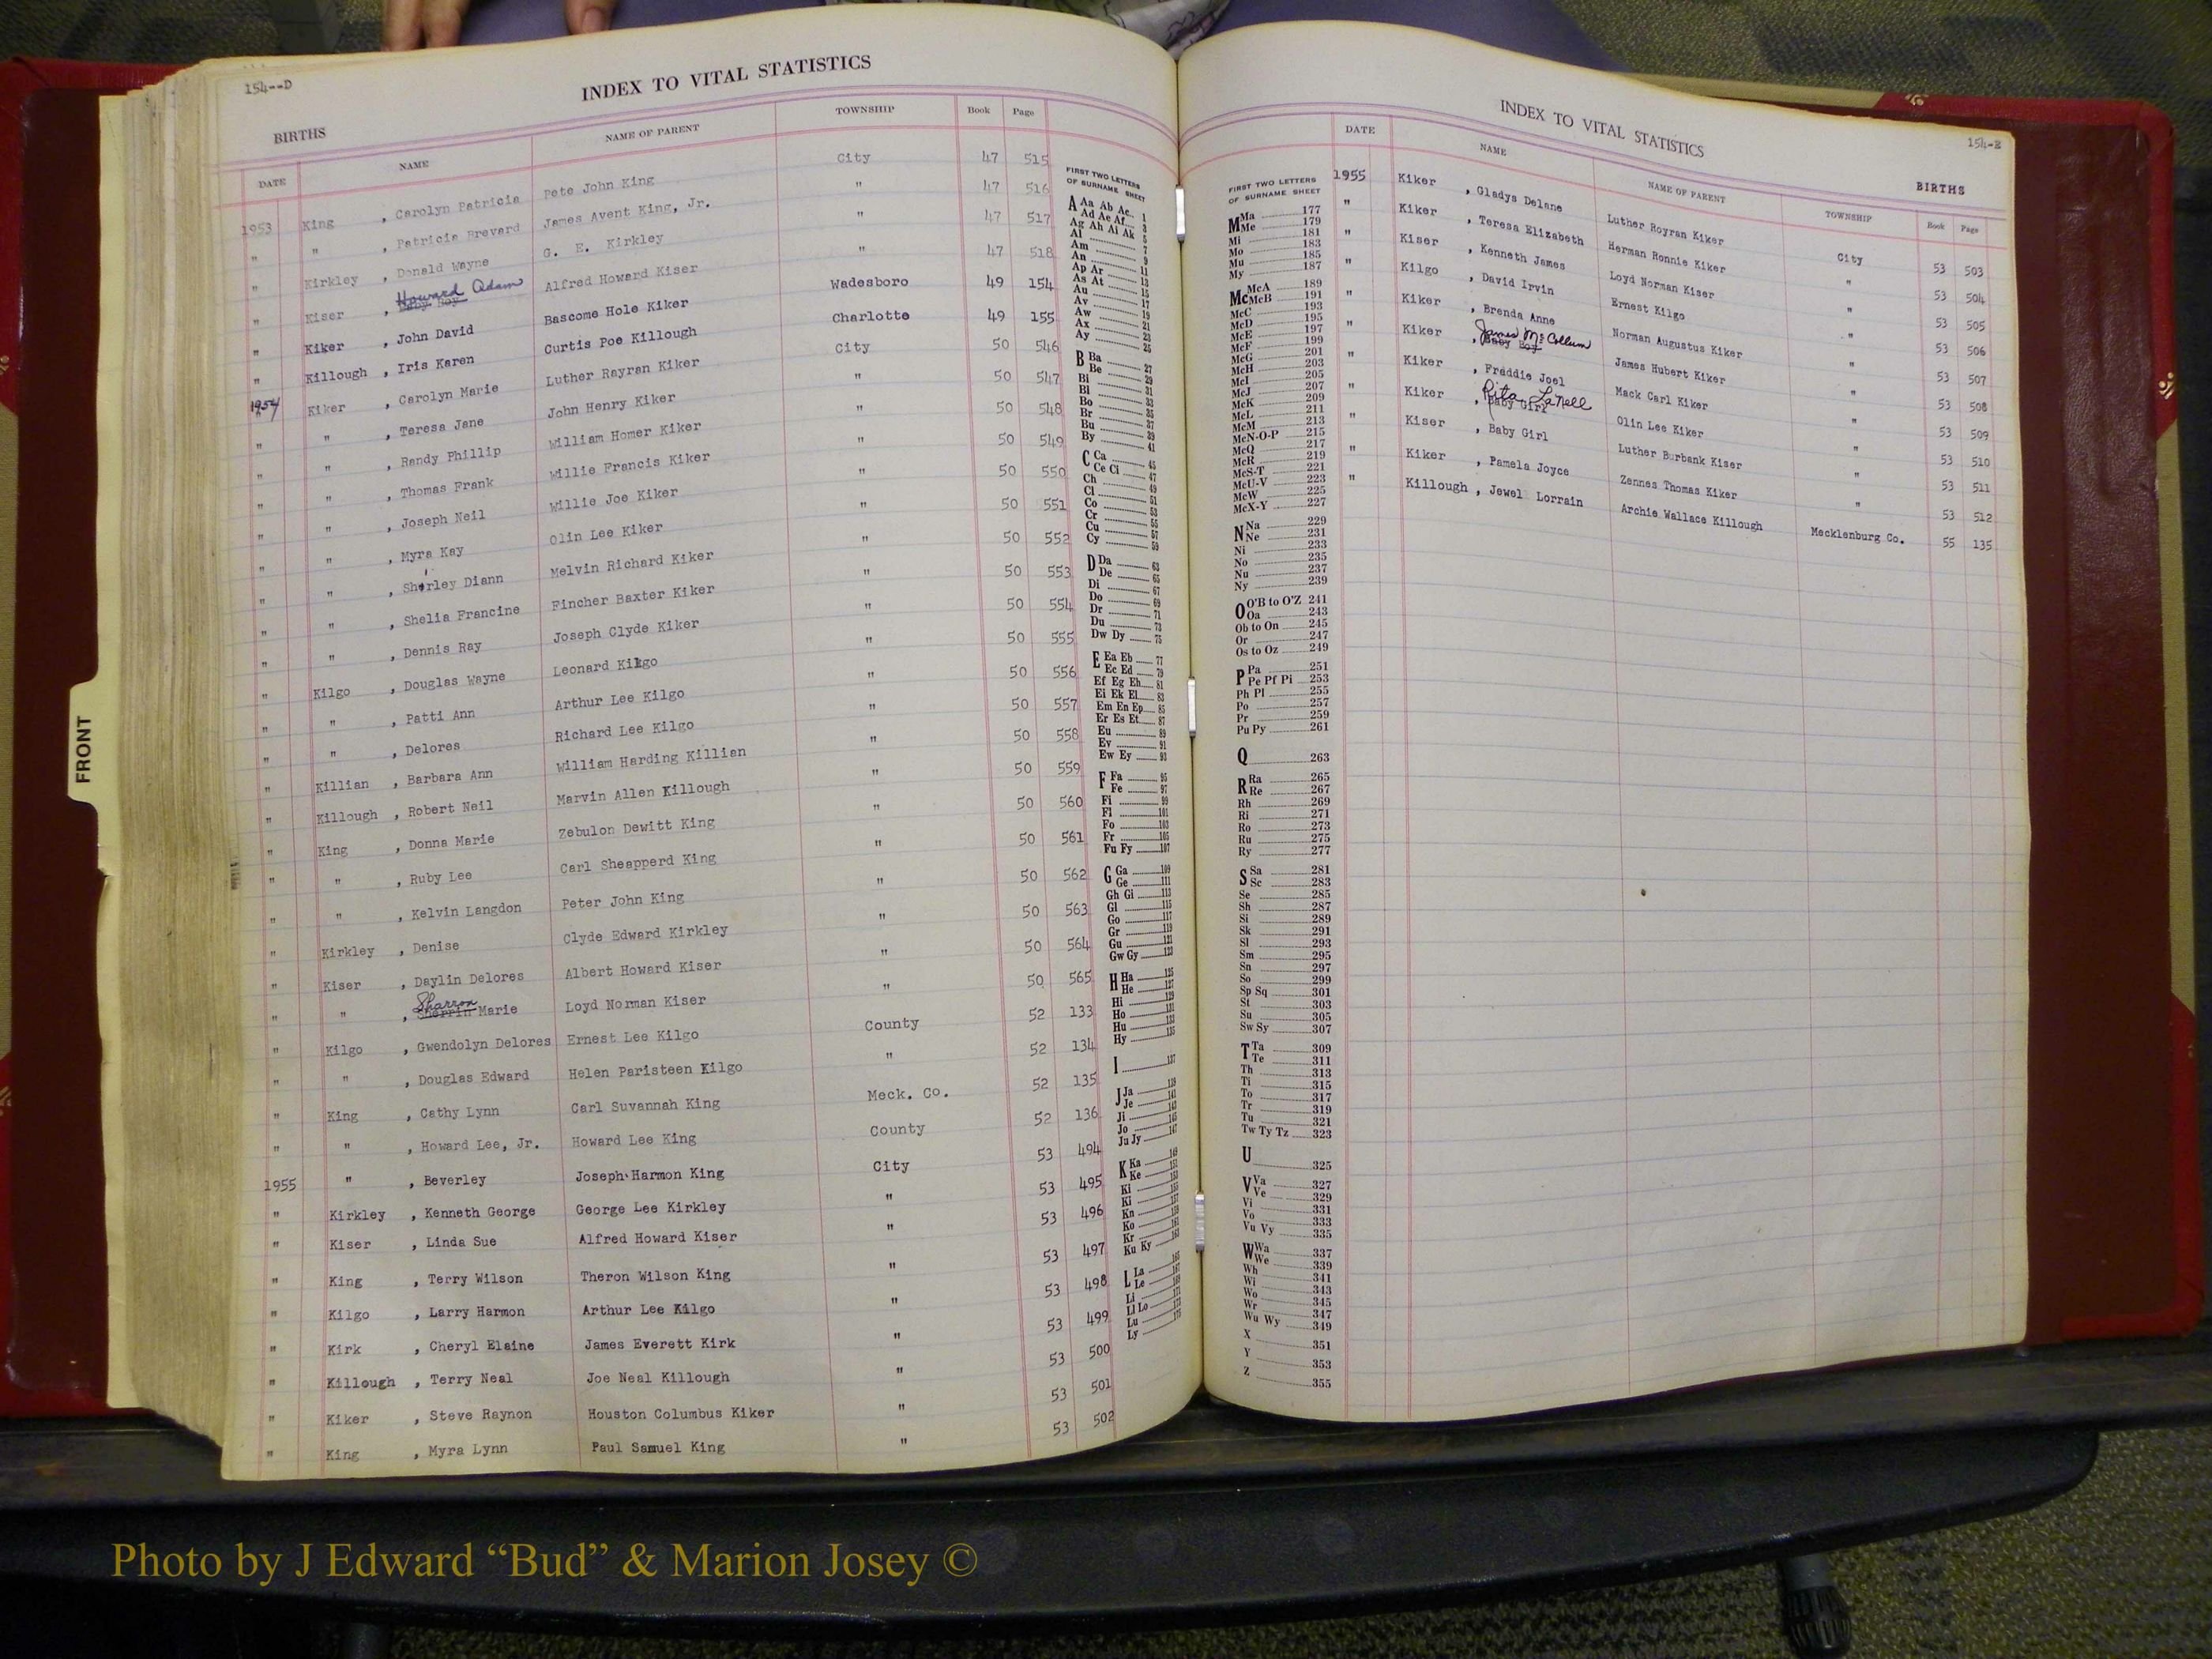 154--D
INDEX TO VITAL STATISTICS
BIRTHS
DATE NAME NAME OF PARENT TOWNSHIP Book Page
1953 King , Carolyn Patricia Pete John King City 47 515
" " , Patricia Brevard James Avent King, Jr. " 47 516
" Kirkley , Donald Wayne G. E. Kirkley " 47 517
" Kiser , Howard Adam Baby Boy Alfred Howard Kiser " 47 518
" Kiker , John David Bascome Hole Kiker Wadesboro 49 154
" Killough , Iris Karen Curtis Poe Killough Charlotte 49 155
1954 Kiker , Carolyn Marie Luther Rayran Kiker City 50 546
" " , Teresa Jane John Henry Kiker " 50 547
" " , Randy Phillip William Homer Kiker " 50 548
" " , Thomas Frank Willie Francis Kiker " 50 549
" " , Joseph Neil Willie Joe Kiker " 50 550
" " , Myra Kay Olin Lee Kiker " 50 551
" " , Shirley Diann Melvin Richard Kiker " 50 552
" " , Shelia Francine Fincher Baxter Kiker " 50 553
" " , Dennis Ray Joseph Clyde Kiker " 50 554
" Kilgo , Douglas Wayne Leonard Kilgo " 50 555
" " , Patti Ann Arthur Lee Kilgo " 50 556
" " , Delores Richard Lee Kilgo " 50 557
" Killian , Barbara Ann William Harding Killian " 50 558
" Killough , Robert Neil Marvin Allen Killough " 50 559
" King , Donna Marie Zebulon Dewitt King " 50 560
" " , Ruby Lee Carl Sheapperd King " 50 561
" " , Kelvin Langdon Peter John King " 50 562
" Kirkley , Denise Clyde Edward Kirkley " 50 563
" Kiser , Daylin Delores Albert Howard Kiser " 50 564
" " , Sharron Sherrin Marie Loyd Norman Kiser " 50 565
" Kilgo , Gwendolyn Delores Ernest Lee Kilgo County 52 133
" " , Douglas Edward Helen Paristeen Kilgo " 52 134
" King , Cathy Lynn Carl Suvannah King Meck. Co. 52 135
" " , Howard Lee, Jr. Howard Lee King County 52 136
1955 " , Beverley Joseph Harmon King City 53 494
" Kirkley , Kenneth George George Lee Kirkley " 53 495
" Kiser , Linda Sue Alfred Howard Kiser " 53 496
" King , Terry Wilson Theron Wilson King " 53 497
" Kilgo , Larry Harmon Arthur Lee Kilgo " 53 498
" Kirk , Cheryl Elaine James Everett Kirk " 53 499
" Killough , Terry Neal Joe Neal Killough " 53 500
" Kiker , Steve Raynon Houston Columbus Kiker " 53 501
" King , Myra Lynn Paul Samuel King " 53 502
FRONT
FIRST TWO LETTERS
OF SURNAME SHEET
A Aa Ab Ac 1
Ad Ae Af 3
Ag Ah Ai Ak 5
Al 7
Am 9
An 11
Ap Ar 13
As At 15
Au 17
Av 19
Aw 21
Ax 23
Ay 25
B Ba 27
Be 29
Bi 31
Bl 33
Bo 35
Br 37
Bu 39
By 41
C Ca 45
Ce Ci 47
Ch 49
Cl 51
Co 53
Cr 55
Cu 57
Cy 59
D Da 63
De 65
Di 67
Do 69
Dr 71
Du 73
Dw Dy 75
E Ea Eb 77
Ec Ed 79
Ef Eg Eh 81
Ei Ek El 83
Em En Ep 85
Er Es Et 87
Eu 89
Ev 91
Ew Ey 93
F Fa 95
Fe 97
Fi 99
Fl 101
Fo 103
Fr 105
Fu Fy 107
G Ga 109
Ge 111
Gh Gi 113
Gl 115
Go 117
Gr 119
Gu 121
Gw Gy 123
H Ha 125
He 127
Hi 129
Ho 131
Hu 133
Hy 135
I 137
J Ja
Je
Ji
Jo
Ju Jy
K Ka
Ke
Ki
Ki
Kn
Ko
Kr
Ku Ky
L La
Le
Li
Ll Lo
Lu
Ly
INDEX TO VITAL STATISTICS
154-E
BIRTHS
FIRST TWO LETTERS
OF SURNAME SHEET
M Ma 177
Me 179
Mi 181
Mo 183
Mu 185
My 187
Mc McA 189
McB 191
McC 193
McD 195
McE 197
McF 199
McG 201
McH 203
McI 205
McJ 207
McK 209
McL 211
McM 213
McN-O-P 215
McQ 217
McR 219
McS-T 221
McU-V 223
McW 225
McX-Y 227
N Na 229
Ne 231
Ni 233
No 235
Nu 237
Ny 239
O O'B to O'Z 241
Oa 243
Ob to On 245
Or 247
Os to Oz 249
P Pa 251
Pe Pf Pi 253
Ph Pl 255
Po 257
Pr 259
Pu Py 261
Q 263
R Ra 265
Re 267
Rh 269
Ri 271
Ro 273
Ru 275
Ry 277
S Sa 281
Sc 283
Se 285
Sh 287
Si 289
Sk 291
Sl 293
Sm 295
Sn 297
So 299
Sp Sq 301
St 303
Su 305
Sw Sy 307
T Ta 309
Te 311
Th 313
Ti 315
To 317
Tr 319
Tu 321
Tw Ty Tz 323
U 325
V Va 327
Ve 329
Vi 331
Vo 333
Vu Vy 335
W Wa 337
We 339
Wh 341
Wi 343
Wo 345
Wr 347
Wu Wy 349
X 351
Y 353
Z 355
DATE NAME NAME OF PARENT TOWNSHIP Book Page
1955 Kiker , Gladys Delane Luther Royran Kiker City 53 503
" Kiker , Teresa Elizabeth Herman Ronnie Kiker " 53 504
" Kiser , Kenneth James Loyd Norman Kiser " 53 505
" Kilgo , David Irvin Ernest Kilgo " 53 506
" Kiker , Brenda Anne Norman Augustus Kiker " 53 507
" Kiker , James McCollum Baby Boy James Hubert Kiker " 53 508
" Kiker , Fraddie Joel Mack Carl Kiker " 53 509
" Kiker , Rita LaNell Baby Girl Olin Lee Kiker " 53 510
" Kiser , Baby Girl Luther Burbank Kiser " 53 511
" Kiker , Pamela Joyce Zennes Thomas Kiker " 53 512
" Killough , Jewel Lorrain Archie Wallace Killough Mecklenburg Co. 55 135
Photo by J Edward “Bud” & Marion Josey ©